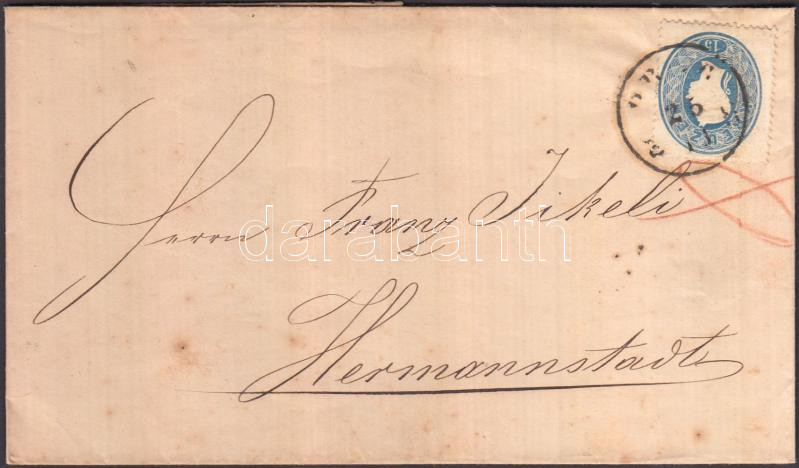 15
Herrn Franz Jikeli
darabanth
Hermannstadt